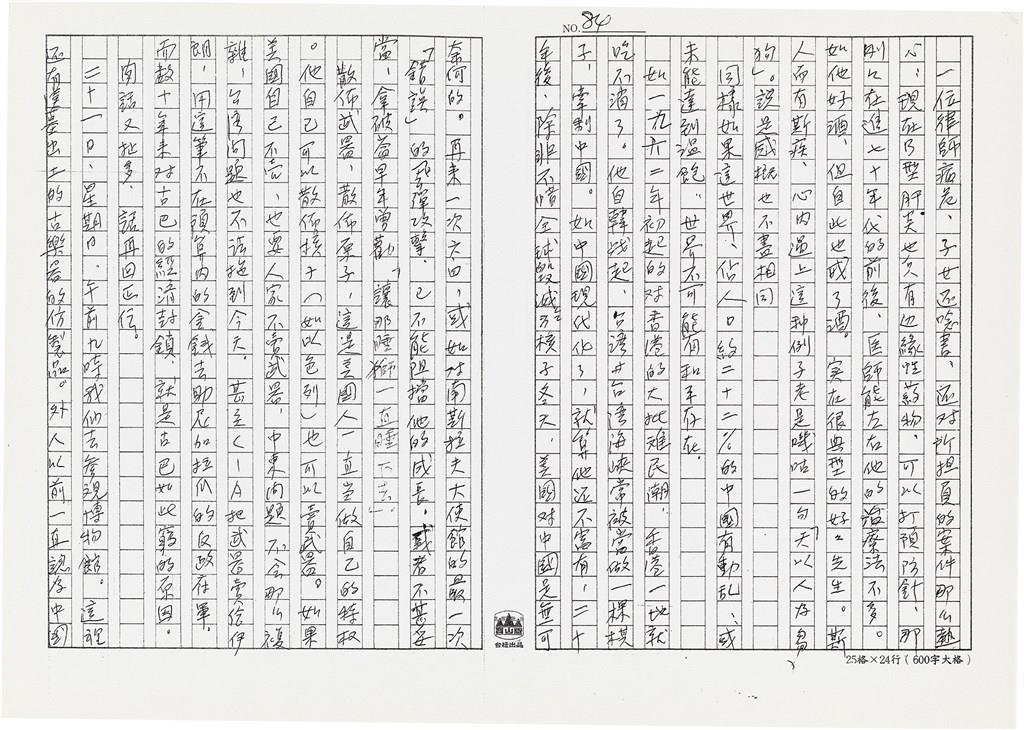 NO. 84
一位律師病危、子女还唸書、还对所担負的案件那么熱
心，現在B型肝炎也只有边緣性葯物、可以打預防針，那
時候在進七十年代的前後、医師能左右他的治療法不多。
如他好酒、但自此也戒了酒。实在很典型的好好先生。斯
人而有斯疾、心內遇上这种例子老是嘰咕一句「天以人为芻
狗」。說是感概也不盡相同
同樣如果這世界、佔人口約二十二%的中國有動乱、或
未能達到温飽、世界不可能有和平存在。
如一九六二年初起的对香港的大批难民潮，香港一地就
吃不消了。他自韓战起、台湾
台湾海峽常被當做一棵棋
子，牽制中國。如中國現代化了，就算他还不富有，二十
年後，除非不惜全球毀滅
核子冬天，美國对中國是無可
奈何的。再来一次六四，或如对南斯拉夫大使館的最一次
「錯誤」的飛彈攻擊，已不能阻擋他的成長。或者不甚妥
當，拿破崙早年曾勸，「讓那睡獅一直睡下去」。
散佈武器，散佈原子，這是美國人一直当做自己的特权
。他自己可以散佈核子（如以色列）也可以賣武器。如果
美國自己不売，也要人家不賣武器，中東问題不会那么複
雜，台湾问題也不该拖到今天。甚至CIA把武器賣给伊
朗，用這筆不在預算內的金錢去助尼加拉瓜的反政府軍。
而数十年来对古巴的經済封鎖，就是古巴如此窮的原因。
閑話又扯多，話再回正传。
二十一日，星期日，午前九時我们去参观博物館。這裡
还有陵墓出土的古樂器的仿製品。外人以前一直認为中國
台灣出品
25格×24行（600字大格）